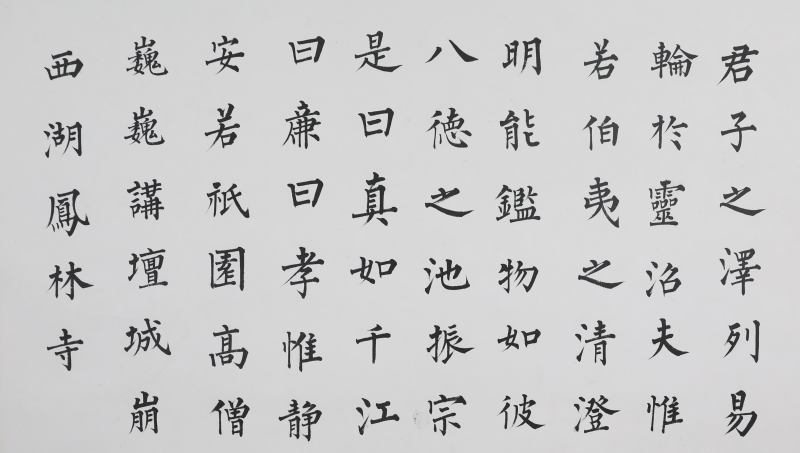 君子之澤列易
輪於靈沼夫惟
若伯夷之清澄
明能鑑物如彼
八徳之池振宗
是曰真如千江
曰廉曰孝惟静
安若祇園高僧
巍巍講壇城崩
西湖鳳林寺